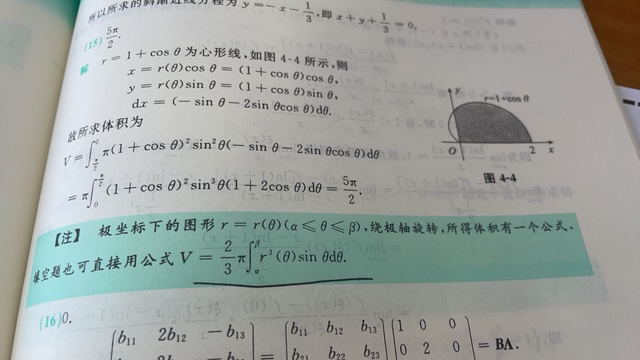 所以所求的斜渐近线方程为 y=-x-1/3,即 x+y+1/3=0.
(15) 5π/2.
解 r=1+cos θ 为心形线,如图 4-4 所示,则
x=r(θ)cos θ=(1+cos θ)cos θ,
y=r(θ)sin θ=(1+cos θ)sin θ,
dx=(-sin θ-2sin θcos θ)dθ.
y
r=1+cos θ
O 2 x
图 4-4
故所求体积为
V=∫_{π/2}^{0} π(1+cos θ)²sin²θ(-sin θ-2sin θcos θ)dθ
=π∫_{0}^{π/2}(1+cos θ)²sin³θ(1+2cos θ)dθ=5π/2.
【注】 极坐标下的图形 r=r(θ)(α≤θ≤β),绕极轴旋转,所得体积有一个公式.
填空题也可直接用公式 V=2/3 π∫_{α}^{β} r³(θ)sin θdθ.
(16)0.
b₁₁ 2b₁₂ -b₁₃ = b₁₁ b₁₂ b₁₃ 1 0 0 =BΛ.
b₂₁ b₂₂ b₂₃ 0 2 0